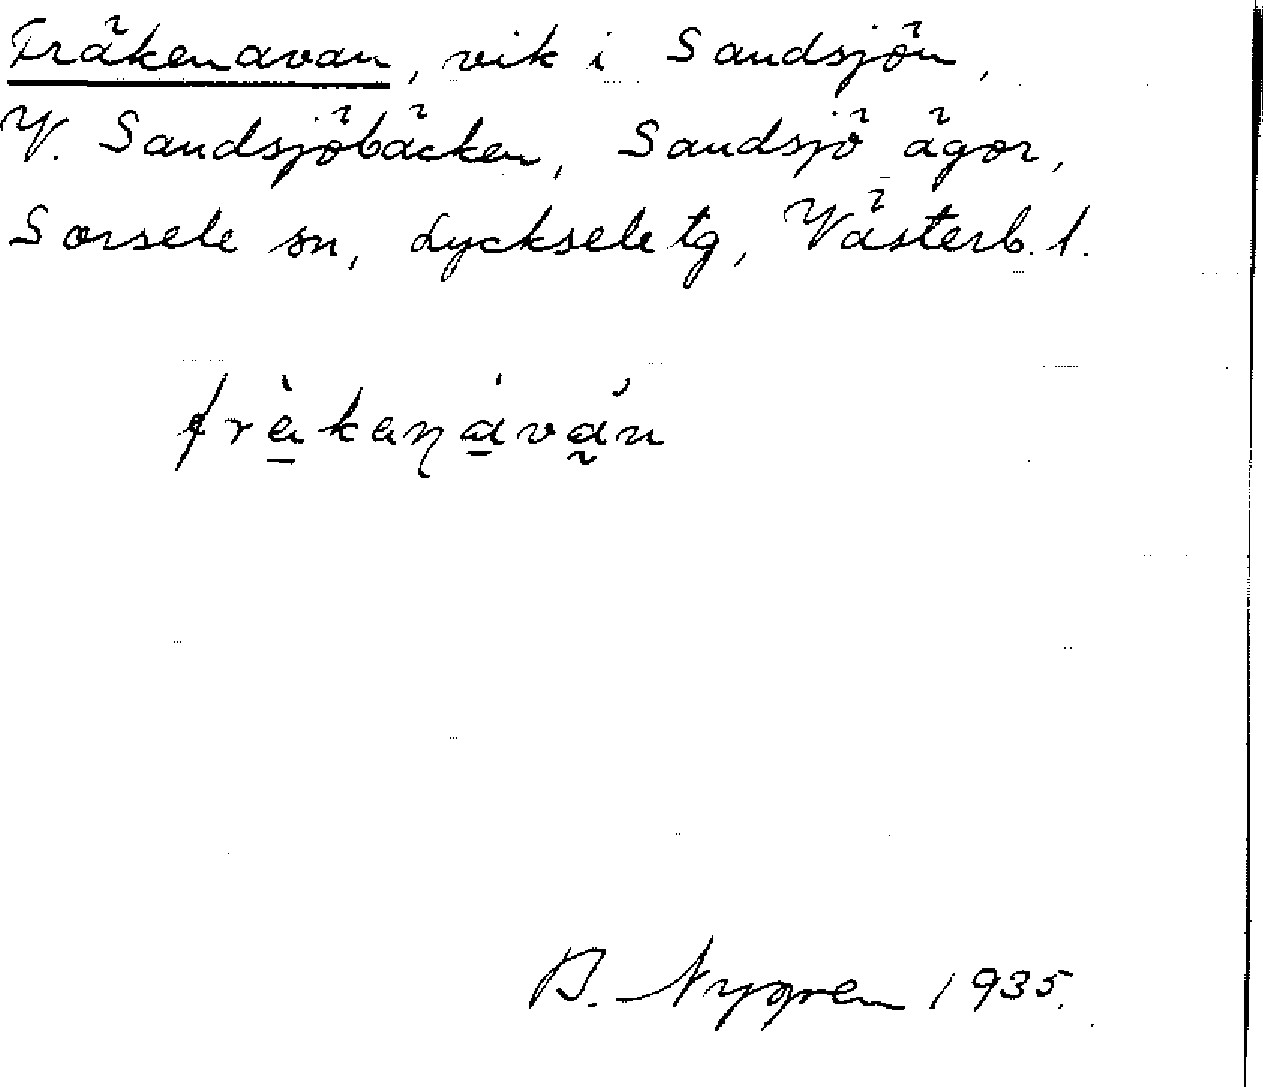 Fräkenavan, vik i Sandsjön,
V. Sandsjöbäcken, Sandsjö ägor,
Sorsele sn, Lycksele tg, Västerb. l.
fràkanáván
B. Nygren 1935.